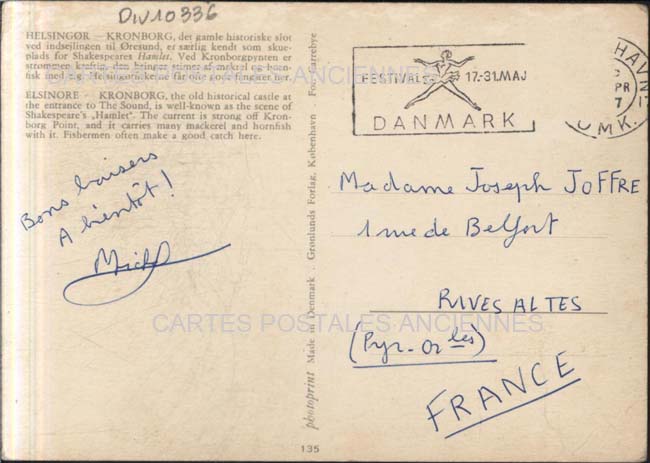 DW10336
HELSINGØR — KRONBORG, det gamle historiske slot
ved indsejlingen til Øresund, er særlig kendt som skue-
plads for Shakespeares Hamlet. Ved Kronborgpynten er
strømmen kraftig, den bringer stimer af makrel og horn-
fisk med sig. Helsingørfiskerne får da gode fangster her.
ELSINORE — KRONBORG, the old historical castle at
the entrance to The Sound, is well-known as the scene of
Shakespeare's „Hamlet". The current is strong off Kron-
borg Point, and it carries many mackerel and hornfish
with it. Fishermen often make a good catch here.
Bons baisers
A bientôt!
photoprint Made in Denmark . Grønlunds Forlag, København Fot.
135
FESTIVALS 17.-31.MAJ
DANMARK
HAVN
PR
7
OMK.
Madame Joseph JOFFRE
1 rue de Belfort
RIVESALTES
(Pyr-Or les)
FRANCE
CARTES POSTALES ANCIENNES
CARTES POSTALES ANCIENNES